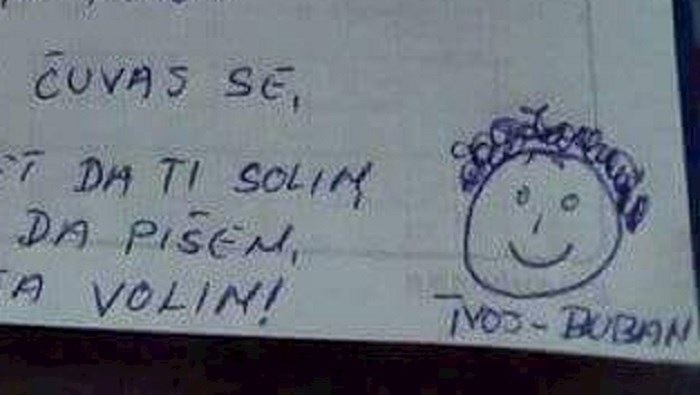 ČUVAŠ SE,
DA TI SOLIM,
DA PIŠEM,
VOLIM!
TVOJ - BUBAN